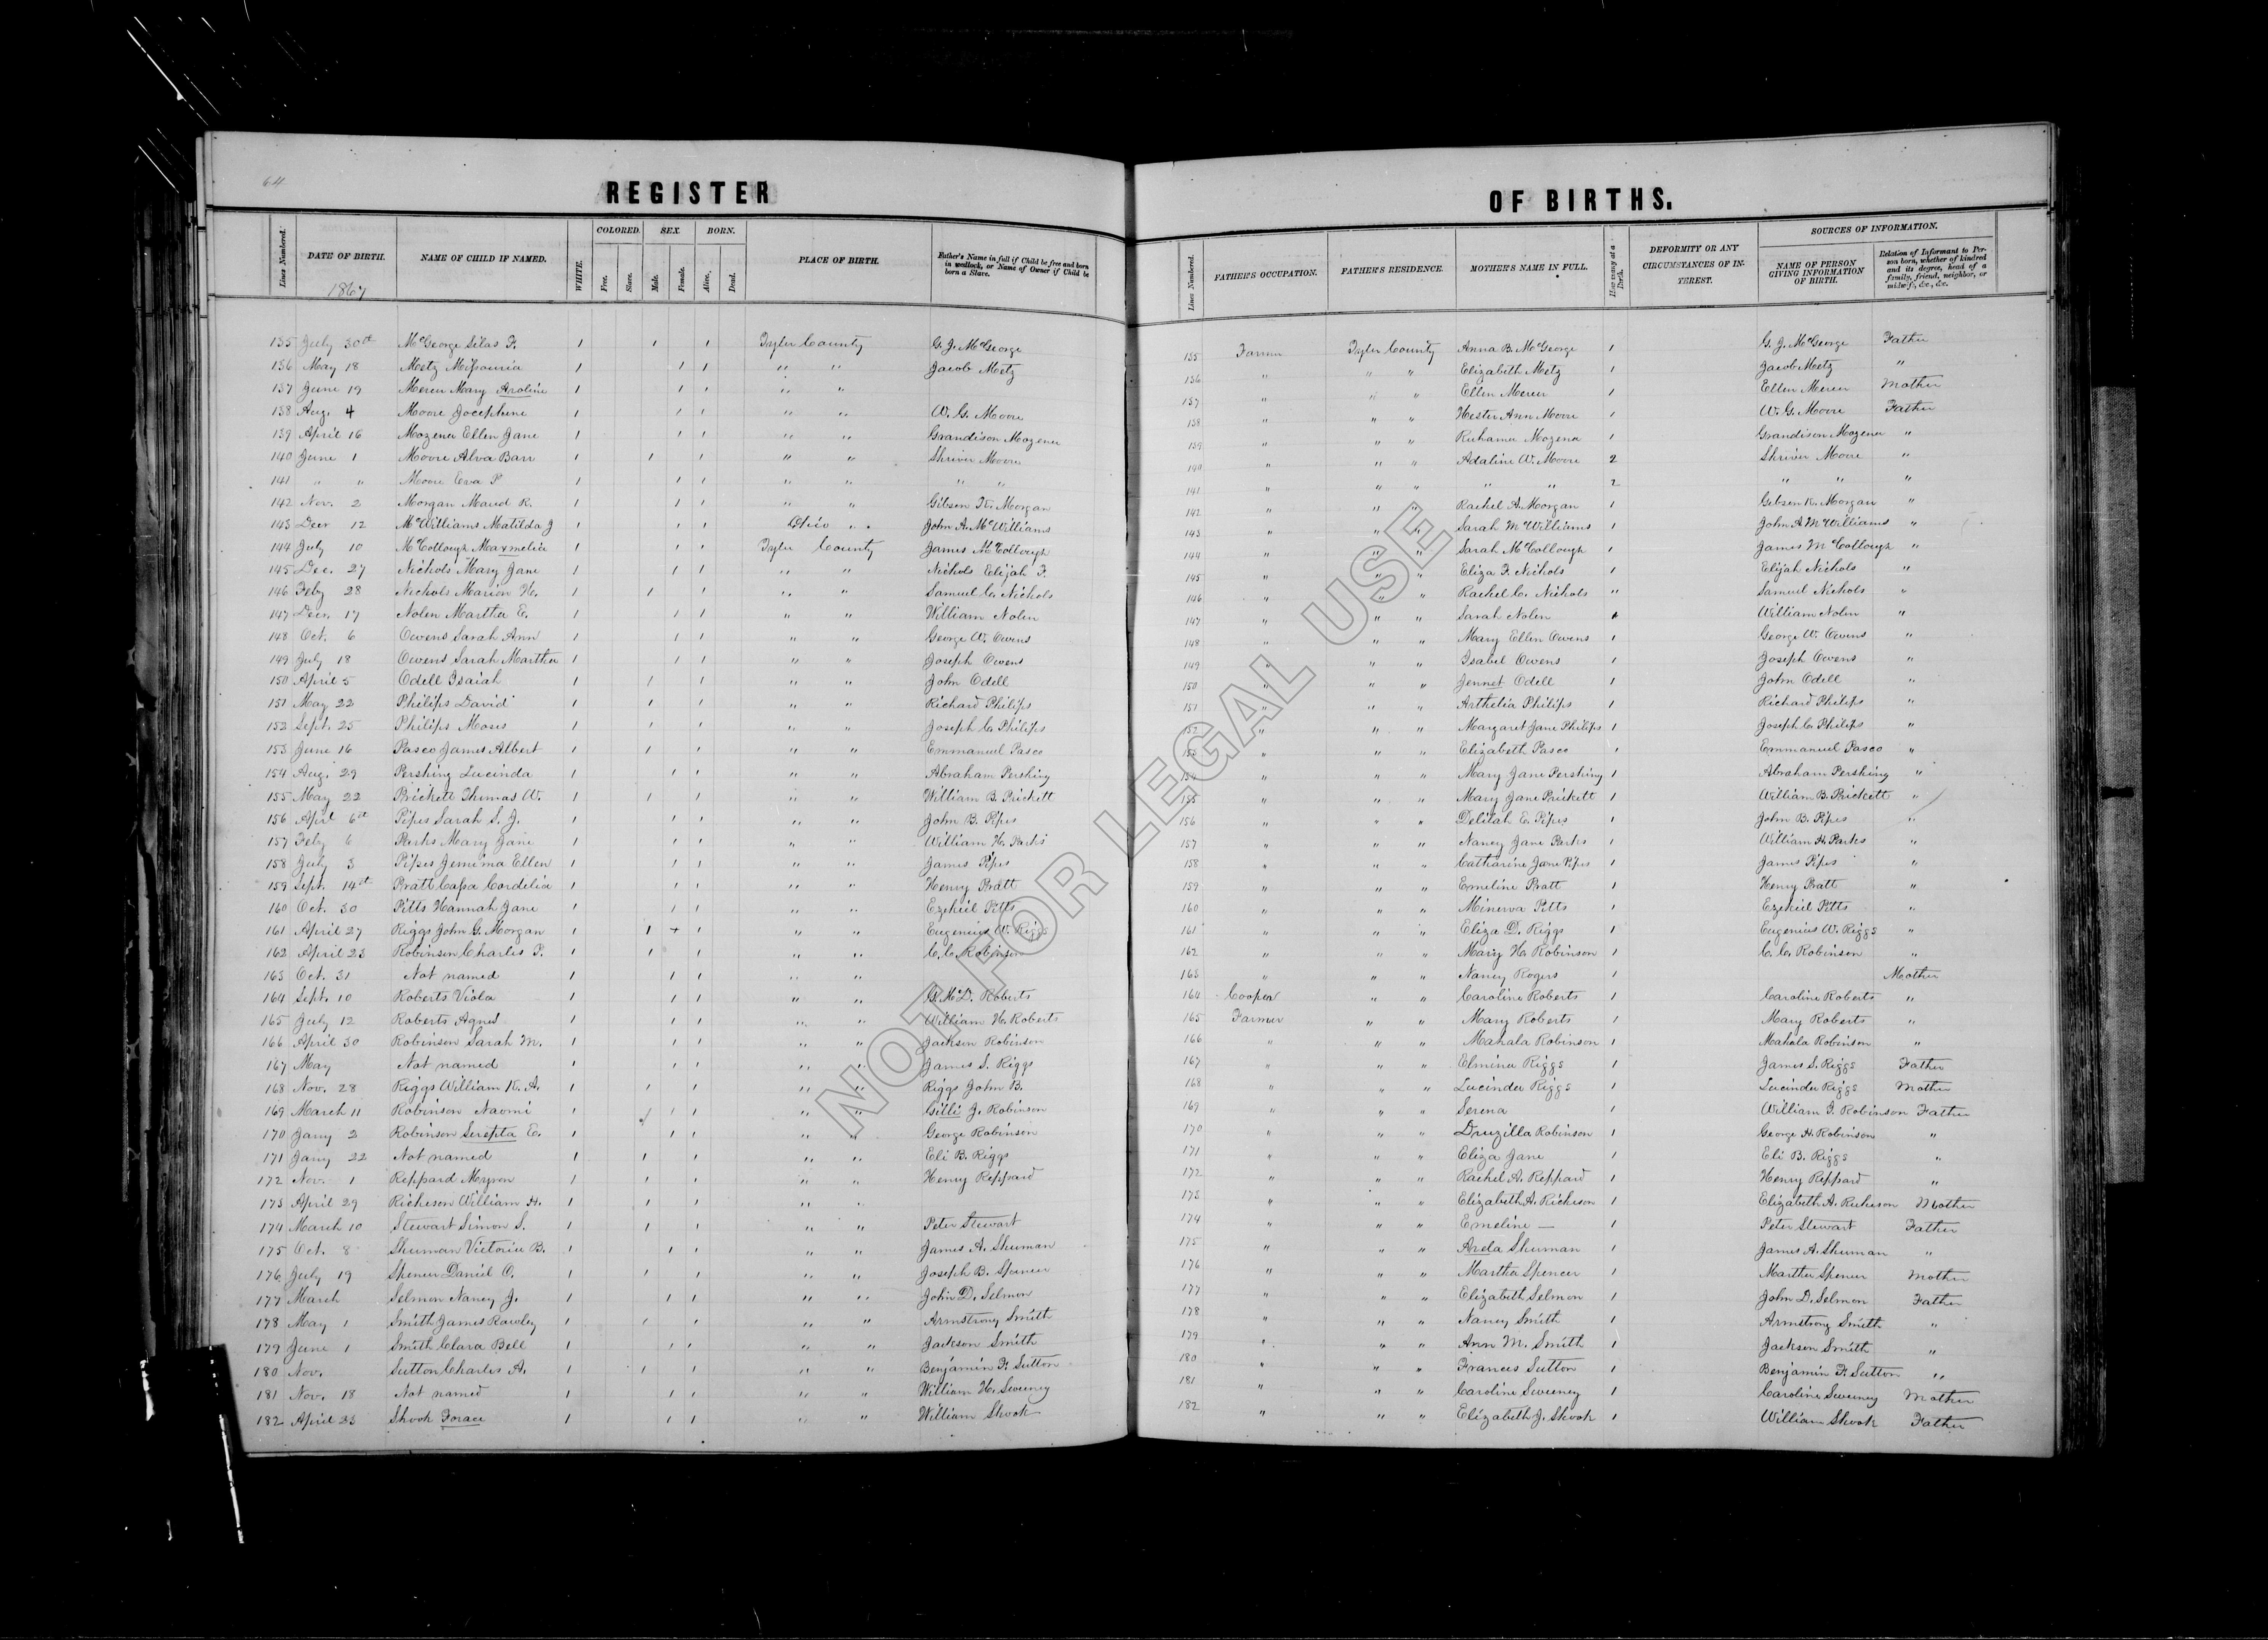 64
REGISTER OF BIRTHS.
Lines Numbered. DATE OF BIRTH. NAME OF CHILD IF NAMED. WHITE. COLORED. Free. Slave. SEX. Male. Female. BORN. Alive. Dead. PLACE OF BIRTH. Father's Name in full if Child be free and born in wedlock, or Name of Owner if Child be born a Slave.
Lines Numbered. FATHER'S OCCUPATION. FATHER'S RESIDENCE. MOTHER'S NAME IN FULL. How many at a Birth. DEFORMITY OR ANY CIRCUMSTANCES OF INTEREST. SOURCES OF INFORMATION. NAME OF PERSON GIVING INFORMATION OF BIRTH. Relation of Informant to Person born, whether of kindred and its degree, head of a family, friend, neighbor, or midwife, &c., &c.
1867
135 July 30th McGeorge Silas F. 1 1 1 Tyler County G. J. McGeorge 135 Farmer Tyler County Anna B. McGeorge 1 G. J. McGeorge Father
136 May 18 Metz Missouria 1 1 1 " " Jacob Metz 136 " " " Elizabeth Metz 1 Jacob Metz "
137 June 19 Mercer Mary Aroline 1 1 1 " " 137 " " " Ellen Mercer 1 Ellen Mercer Mother
138 Aug. 4 Moore Josephine 1 1 1 " " W. G. Moore 138 " " " Hester Ann Moore 1 W. G. Moore Father
139 April 16 Mozena Ellen Jane 1 1 1 " " Grandison Mozena 139 " " " Ruhama Mozena 1 Grandison Mozena "
140 June 1 Moore Alva Barr 1 1 1 " " Shriver Moore 140 " " " Adaline W. Moore 2 Shriver Moore "
141 " " Moore Eva P 1 1 1 " " " " 141 " " " " " 2 " " "
142 Nov. 2 Morgan Maud R. 1 1 1 " " Gibson K. Morgan 142 " " " Rachel A. Morgan 1 Gibson K. Morgan "
143 Decr 12 McWilliams Matilda J 1 1 1 Ohio " " John A. McWilliams 143 " " " Sarah McWilliams 1 John A McWilliams "
144 July 10 McCollough Maxmelia 1 1 1 Tyler County James McCollough 144 " " " Sarah McCollough 1 James McCollough "
145 Dec. 27 Nichols Mary Jane 1 1 1 " " Nichols Elijah F. 145 " " " Eliza F. Nichols 1 Elijah Nichols "
146 Feby 28 Nichols Marion H. 1 1 1 " " Samuel C. Nichols 146 " " " Rachel C. Nichols " Samuel Nichols "
147 Decr. 17 Nolen Martha E. 1 1 1 " " William Nolen 147 " " " Sarah Nolen William Nolen "
148 Oct. 6 Owens Sarah Ann 1 1 1 " " George W. Owens 148 " " " Mary Ellen Owens 1 George W. Owens "
149 July 18 Owens Sarah Martha 1 1 1 " " Joseph Owens 149 " " " Isabel Owens 1 Joseph Owens "
150 April 5 Odell Isaiah 1 1 1 " " John Odell 150 " " " Jennet Odell 1 John Odell "
151 May 22 Philips David 1 1 1 " " Richard Philips 151 " " " Arthelia Philips 1 Richard Philips "
152 Sept. 25 Philips Moses 1 1 1 " " Joseph C. Philips 152 " " " Margaret Jane Philips 1 Joseph C. Philips "
153 June 16 Pasco James Albert 1 1 1 " " Emmanuel Pasco 153 " " " Elizabeth Pasco 1 Emmanuel Pasco "
154 Aug. 29 Pershing Lucinda 1 1 1 " " Abraham Pershing 154 " " " Mary Jane Pershing 1 Abraham Pershing "
155 May 22 Prickett Thomas W. 1 1 1 " " William B. Prickett 155 " " " Mary Jane Prickett 1 William B. Prickett "
156 April 6th Pipes Sarah S. J. 1 1 1 " " John B. Pipes 156 " " " Delilah E. Pipes 1 John B. Pipes "
157 Feby 6 Parks Mary Jane 1 1 1 " " William H. Parks 157 " " " Nancy Jane Parks 1 William H. Parks "
158 July 3 Pipes Jemima Ellen 1 1 1 " " James Pipes 158 " " " Catharine Jane Pipes 1 James Pipes "
159 Sept. 14th Pratt Cassa Cordelia 1 1 1 " " Henry Pratt 159 " " " Emeline Pratt 1 Henry Pratt "
160 Oct. 30 Pitts Hannah Jane 1 1 1 " " Ezekiel Pitts 160 " " " Minerva Pitts 1 Ezekiel Pitts "
161 April 27 Riggs John G. Morgan 1 1 + 1 " " Eugenius W. Riggs 161 " " " Eliza D. Riggs 1 Eugenius W. Riggs "
162 April 23 Robinson Charles T. 1 1 1 " " C. C. Robinson 162 " " " Mary H. Robinson 1 C. C. Robinson "
163 Oct. 31 Not named 1 1 1 " " 163 " " " Nancy Rogers 1 Mother
164 Sept. 10 Roberts Viola 1 1 1 " " G. McD. Roberts 164 Cooper " " Caroline Roberts 1 Caroline Roberts "
165 July 12 Roberts Agnes 1 1 1 " " William H. Roberts 165 Farmer " " Mary Roberts 1 Mary Roberts "
166 April 30 Robinson Sarah M. 1 1 1 " " Jackson Robinson 166 " " " Mahala Robinson 1 Mahala Robinson "
167 May Not named 1 1 1 " " James S. Riggs 167 " " " Elmina Riggs 1 James S. Riggs Father
168 Nov. 28 Riggs William K. A. 1 1 1 " " Riggs John B. 168 " " " Lucinda Riggs 1 Lucinda Riggs Mother
169 March 11 Robinson Naomi 1 1 1 " " Gilli J. Robinson 169 " " " Serena 1 William J. Robinson Father
170 Jany 2 Robinson Serepta E. 1 1 1 " " George Robinson 170 " " " Druzilla Robinson 1 George H. Robinson "
171 Jany 22 Not named 1 1 1 " " Eli B. Riggs 171 " " " Eliza Jane 1 Eli B. Riggs "
172 Nov. 1 Reppard Myron 1 1 1 " " Henry Reppard 172 " " " Rachel A. Reppard 1 Henry Reppard "
173 April 29 Richeson William H. 1 1 1 " " 173 " " " Elizabeth A. Richeson 1 Elizabeth A. Richeson Mother
174 March 10 Stewart Simon S. 1 1 1 " " Peter Stewart 174 " " " Emeline — 1 Peter Stewart Father
175 Oct. 8 Shuman Victoria B. 1 1 1 " " James A. Shuman 175 " " " Arela Shuman 1 James A. Shuman "
176 July 19 Spencer Daniel O. 1 1 1 " " Joseph B. Spencer 176 " " " Martha Spencer 1 Martha Spencer Mother
177 March Selmon Nancy J. 1 1 1 " " John D. Selmon 177 " " " Elizabeth Selmon 1 John D. Selmon Father
178 May 1 Smith James Rawley 1 1 1 " " Armstrong Smith 178 " " " Nancy Smith 1 Armstrong Smith "
179 June 1 Smith Clara Bell 1 1 1 " " Jackson Smith 179 " " " Ann M. Smith 1 Jackson Smith "
180 Nov. Sutton Charles A. 1 1 1 " " Benjamin F. Sutton 180 " " " Frances Sutton 1 Benjamin F. Sutton "
181 Nov. 18 Not named 1 1 1 " " William H. Sweeney 181 " " " Caroline Sweeney 1 Caroline Sweeney Mother
182 April 23 Shook Forace 1 1 1 " " William Shook 182 " " " Elizabeth J. Shook 1 William Shook Father
NOT FOR LEGAL USE